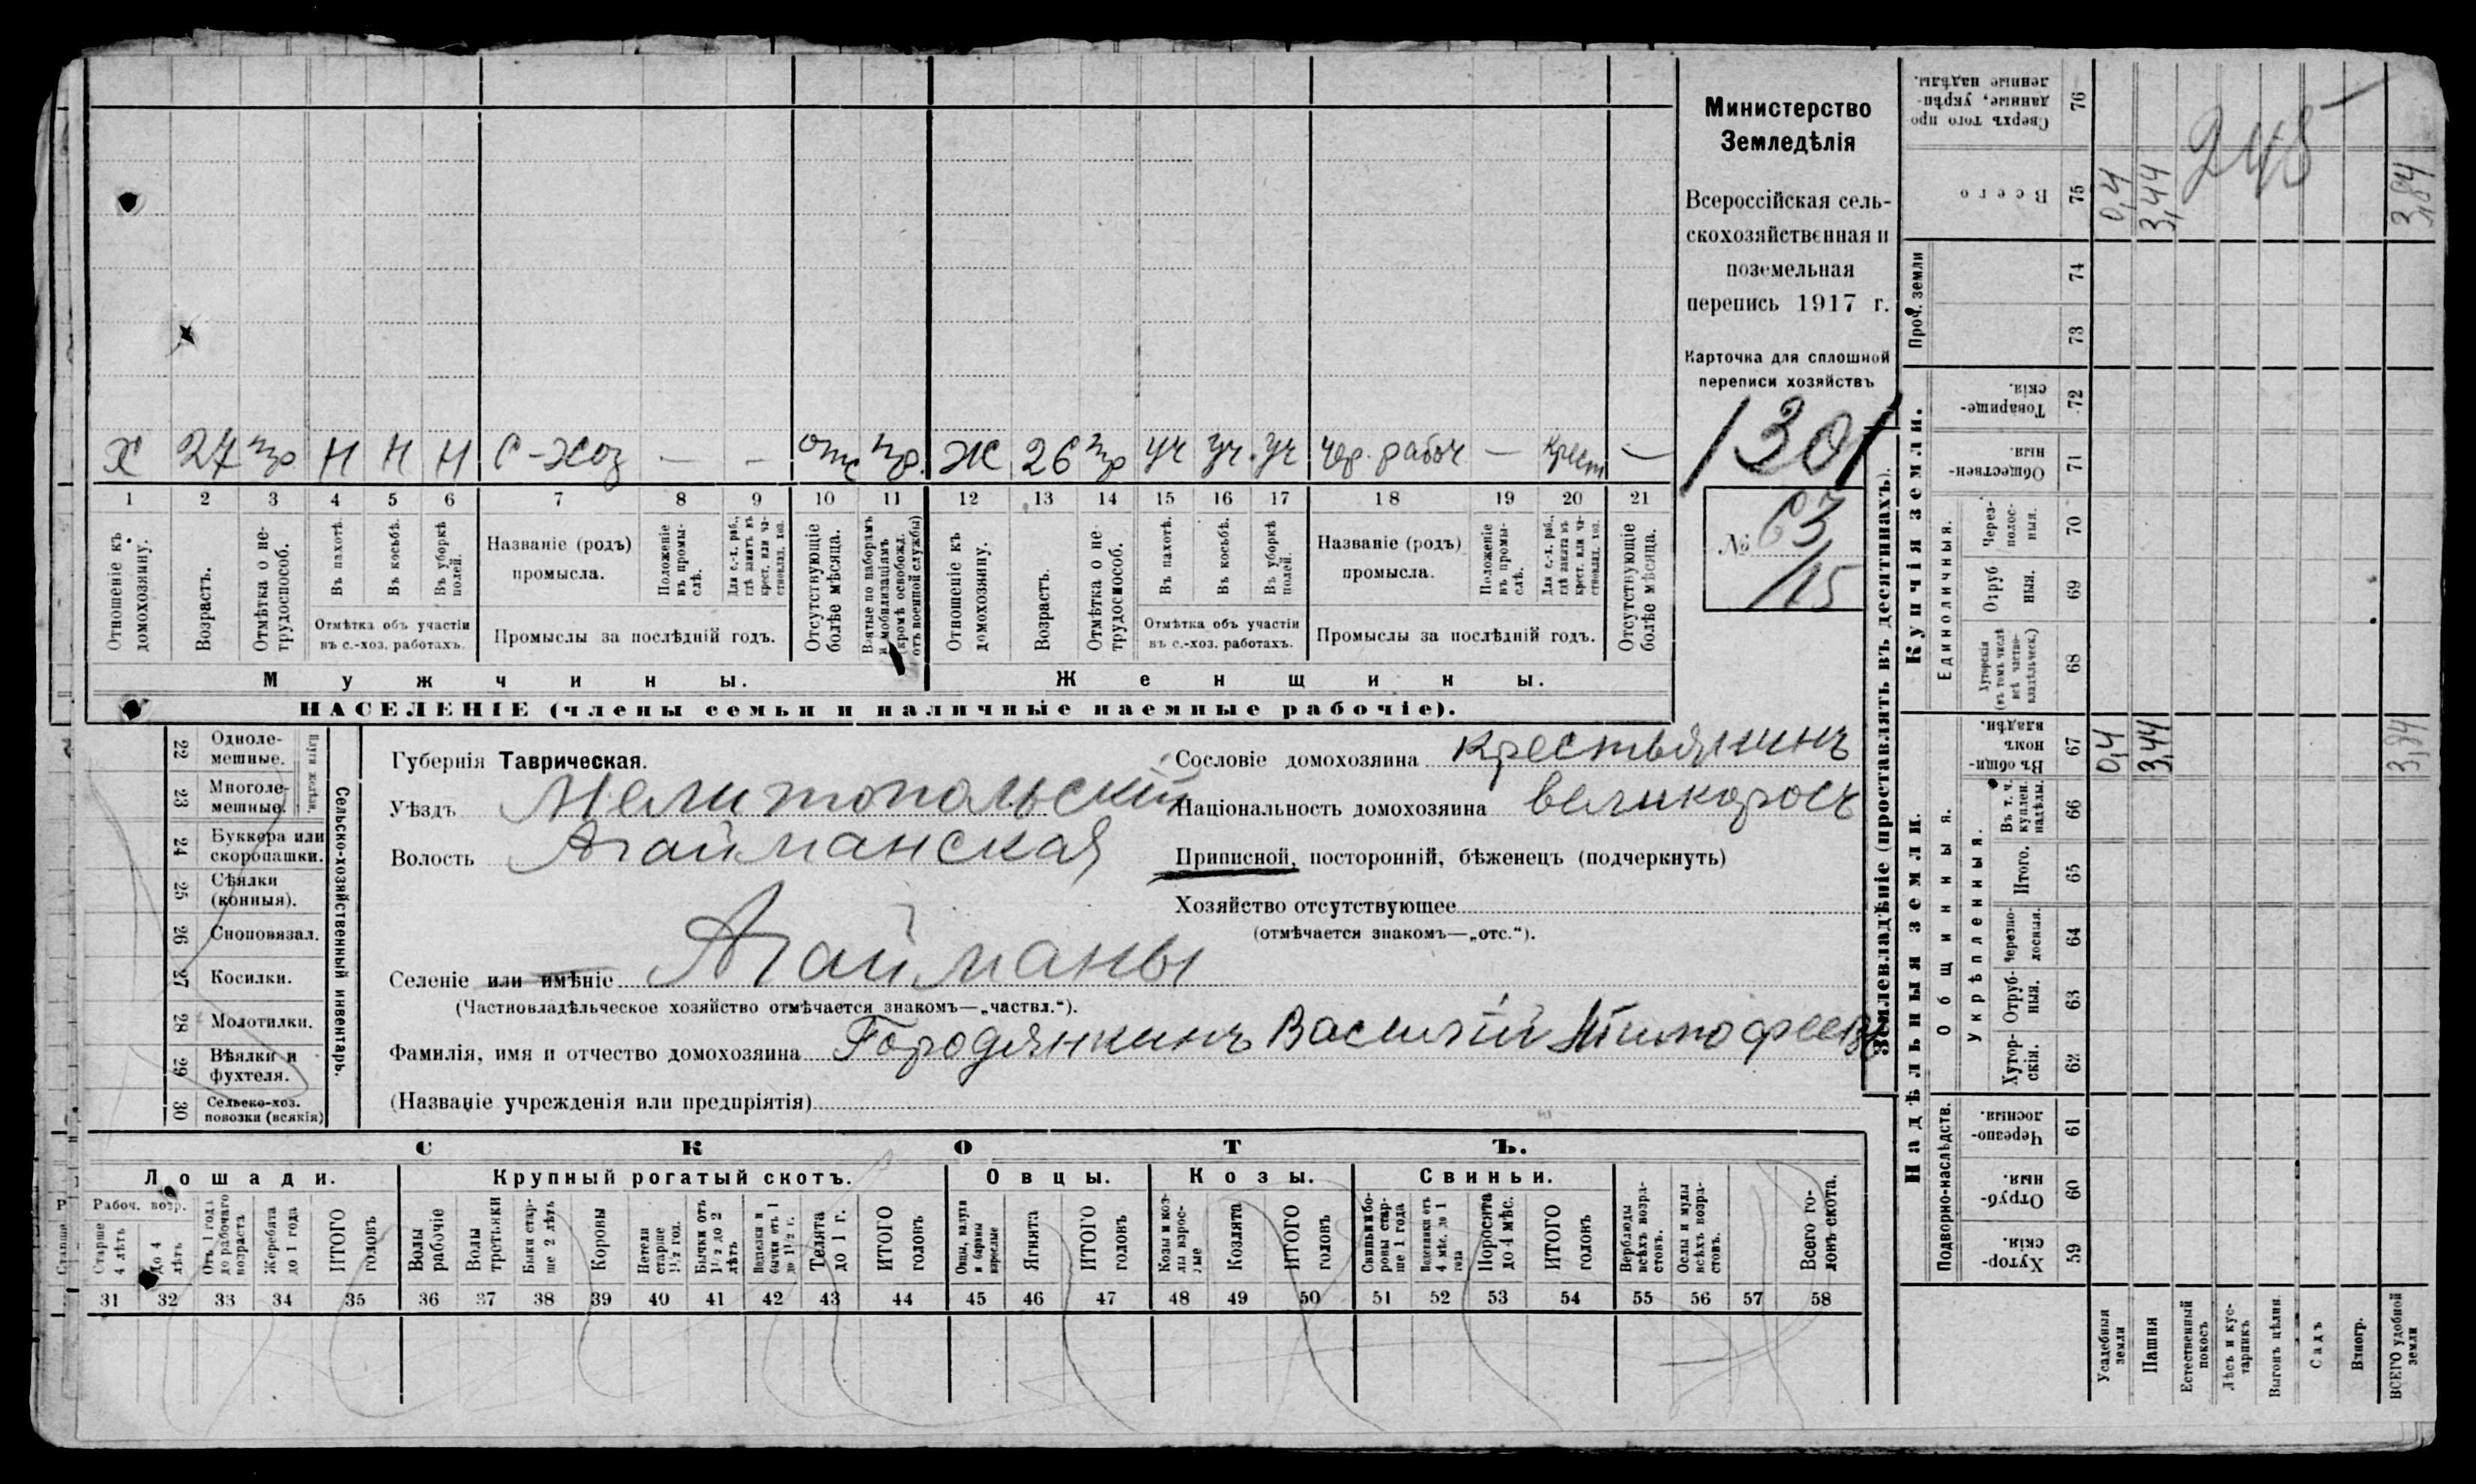 х 27 тр Н Н Н С-хоз — — отс пр. Ж 26 тр уч уч. уч чер. рабоч — крест —
1 2 3 4 5 6 7 8 9 10 11 12 13 14 15 16 17 18 19 20 21
Отношеніе къ домохозяину.
Возрастъ.
Отмѣтка о не-трудоспособ.
Въ пахотѣ.
Въ косьбѣ.
Въ уборкѣ полей.
Отмѣтка объ участіи
въ с.-хоз. работахъ.
Названіе (родъ)
промысла.
Положеніе въ промы-слѣ.
Для с.-х. раб., гдѣ занятъ въ крест. или ча-стновлад. хоз.
Промыслы за послѣдній годъ.
Отсутствующіе болѣе мѣсяца.
Взятые по наборамъ и мобилизаціямъ (кромѣ освобожд. отъ военной службы)
Отношеніе къ домохозяину.
Возрастъ.
Отмѣтка о не трудоспособ.
Въ пахотѣ.
Въ косьбѣ.
Въ уборкѣ полей.
Отмѣтка объ участіи
въ с.-хоз. работахъ.
Названіе (родъ)
промысла.
Положеніе въ промы-слѣ.
Для с.-х. раб., гдѣ занята въ крест. или ча-стновлад. хоз.
Промыслы за послѣдній годъ.
Отсутствующіе болѣе мѣсяца.
Мужчины. Женщины.
НАСЕЛЕНІЕ (члены семьи и наличные наемные рабочіе).
Министерство
Земледѣлія
Всероссійская сель-
скохозяйственная и
поземельная
перепись 1917 г.
Карточка для сплошной
переписи хозяйствъ
1301
№ 63
/15
22 Одноле-
мешные.
23 Многоле-
мешные.
24 Буккера или
скоропашки.
25 Сѣялки
(конныя).
26 Сноповязал.
27 Косилки.
28 Молотилки.
29 Вѣялки и
фухтеля.
30 Сельско-хоз.
повозки (всякія)
Сельско-хозяйственный инвентарь.
Губернія Таврическая.
Уѣздъ Мелитопольскій
Волость Агайманская
Селеніе или имѣніе Агайманы
(Частновладѣльческое хозяйство отмѣчается знакомъ—„частвл.“).
Фамилія, имя и отчество домохозяина Городянкинъ Василій Тимофеев
(Названіе учрежденія или предпріятія)
Сословіе домохозяина крестьянинъ
Національность домохозяина великоросъ
Приписной, посторонній, бѣженецъ (подчеркнуть)
Хозяйство отсутствующее
(отмѣчается знакомъ—„отс.“).
СКОТЪ.
Лошади. Крупный рогатый скотъ. Овцы. Козы. Свиньи.
Рабоч. возр.
Старше 4 лѣтъ
до 4 лѣтъ
Отъ 1 года до рабочаго возраста
Жеребята до 1 года
ИТОГО головъ
Волы рабочіе
Волы третьяки
Быки стар-ше 2 лѣтъ
Коровы
Нетели старше 1½ год.
Бычки отъ 1½ до 2 лѣтъ
Телята до 1 г.
ИТОГО головъ
Ягнята
ИТОГО головъ
Козы и коз-лы взрос-лые
Козлята
ИТОГО головъ
Свиньи и бо-ровы стар-ше 1 года
Поросята до 4 мѣс.
ИТОГО головъ
Верблюды всѣхъ возра-стовъ.
Ослы и мулы всѣхъ возра-стовъ.
Всего го-ловъ скота.
31 32 33 34 35 36 37 38 39 40 41 42 43 44 45 46 47 48 49 50 51 52 53 54 55 56 57 58
Землевладѣніе (проставлять въ десятинахъ).
Надѣльныя земли. Купчія земли.
Проч. земли
Подворно-наслѣдств.
Общинныя.
Укрѣпленныя.
Единоличныя.
Сверхъ того про данные, укрѣп-ленные надѣлы. 76
Всего 75 0,4 3,44 3,84
248
74
73
Товарище-скія. 72
Обществен-ныя. 71
Через-полос-ныя. 70
Отруб ныя. 69
Хуторскія (въ томъ числѣ всѣ частно-владѣльческ.) 68
Въ общи-номъ владѣн. 67 0,4 3,44 3,84
Въ т. ч. куплен. надѣлы. 66
Итого. 65
Черезпо-лосныя. 64
Отруб-ныя. 63
Хутор-скія. 62
Черезпо-лосныя. 61
Отруб-ныя. 60
Хутор-скія. 59
Усадебныя земли
Пашня
Естественный покосъ
Лѣсъ и кус-тарникъ
Выгонъ цѣлин.
Садъ
Виногр.
ВСЕГО удобной земли